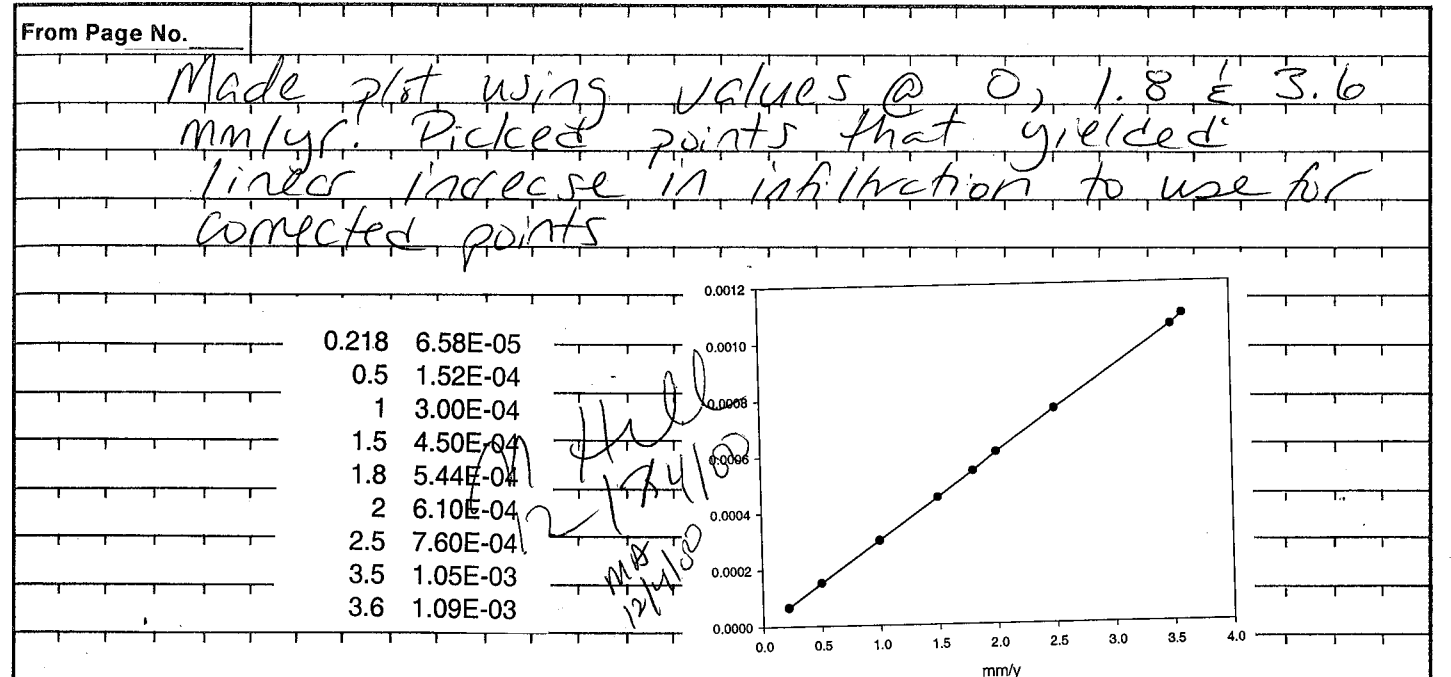 From Page No.
Made plot using values @ 0, 1.8 & 3.6
mm/yr. Picked points that yielded
linear increase in infiltration to use for
corrected points
0.218 6.58E-05
0.5 1.52E-04
1 3.00E-04
1.5 4.50E-04
1.8 5.44E-04
2 6.10E-04
2.5 7.60E-04
3.5 1.05E-03
3.6 1.09E-03
M Hill
12/4/00
12/4/00
0.0012
0.0010
0.0008
0.0006
0.0004
0.0002
0.0000
0.0 0.5 1.0 1.5 2.0 2.5 3.0 3.5 4.0
mm/y